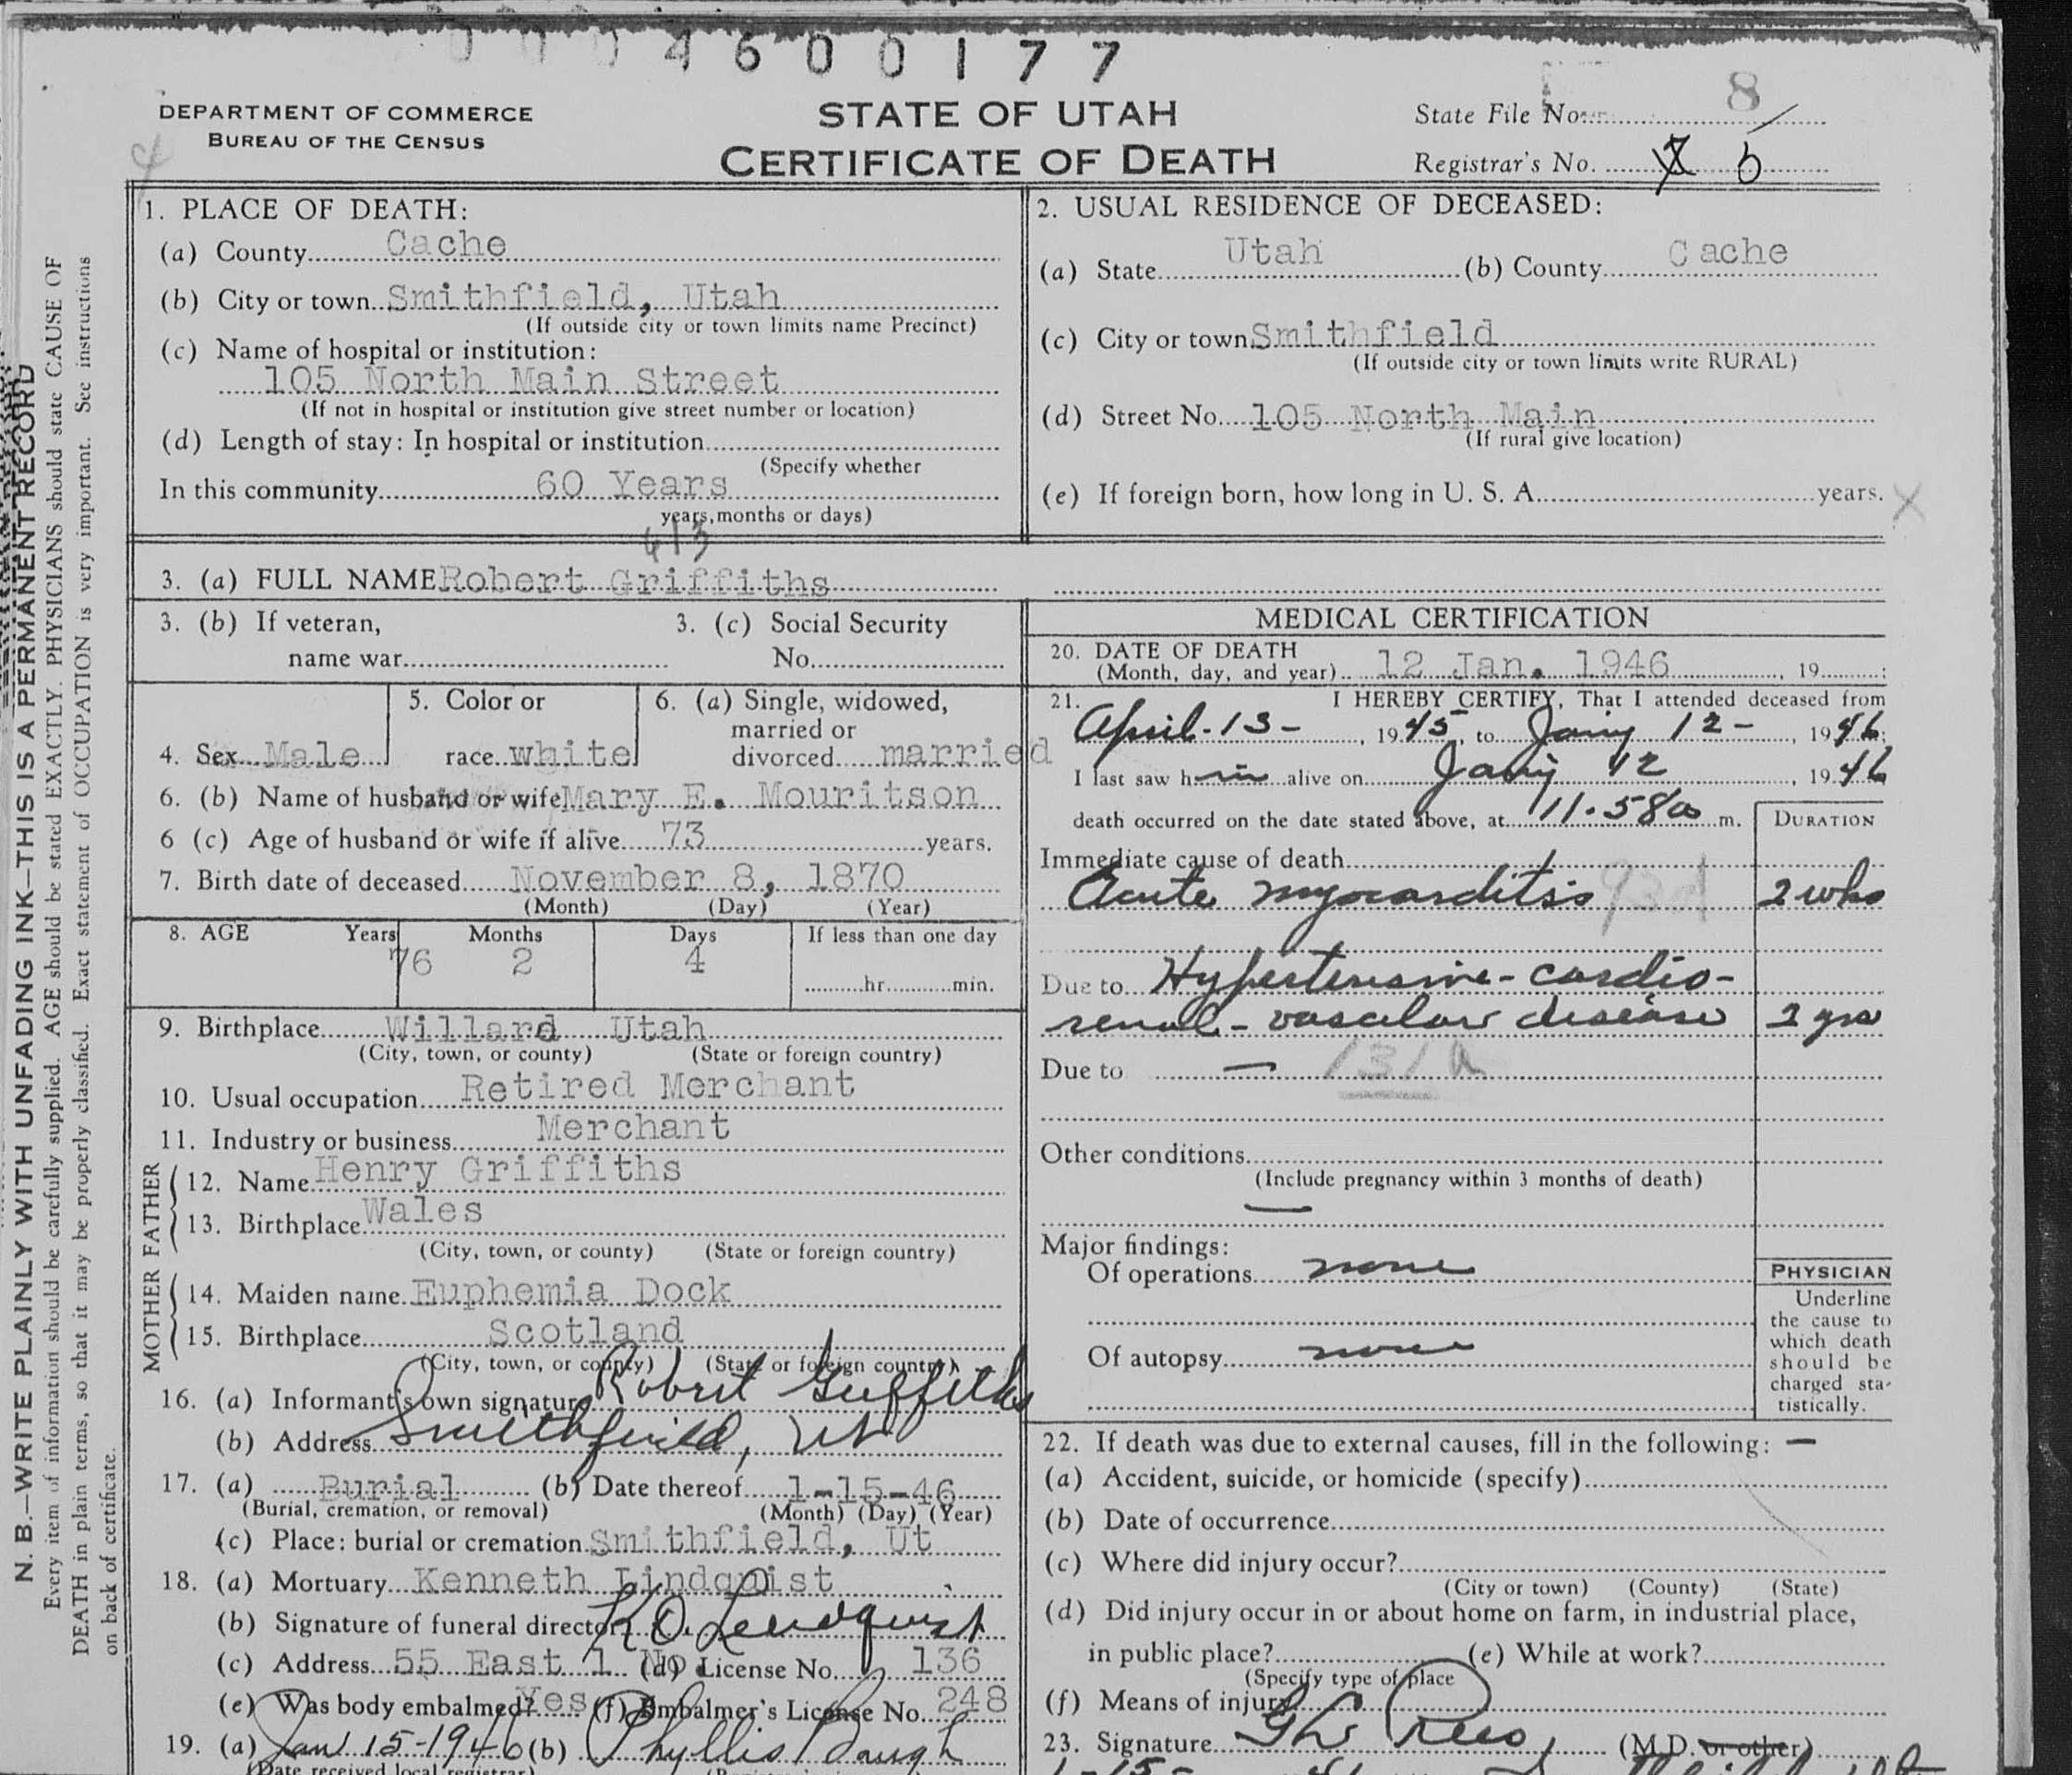 4 6 0 0 1 7 7
DEPARTMENT OF COMMERCE
BUREAU OF THE CENSUS
STATE OF UTAH
CERTIFICATE OF DEATH
State File No. 8
Registrar's No. 5
1. PLACE OF DEATH:
(a) County Cache
(b) City or town Smithfield, Utah
(If outside city or town limits name Precinct)
(c) Name of hospital or institution:
105 North Main Street
(If not in hospital or institution give street number or location)
(d) Length of stay: In hospital or institution
(Specify whether
In this community 60 Years
years, months or days)
2. USUAL RESIDENCE OF DECEASED:
(a) State Utah (b) County Cache
(c) City or town Smithfield
(If outside city or town limits write RURAL)
(d) Street No. 105 North Main
(If rural give location)
(e) If foreign born, how long in U. S. A. years.
3. (a) FULL NAME Robert Griffiths
3. (b) If veteran,
name war
3. (c) Social Security
No.
4. Sex Male
5. Color or
race white
6. (a) Single, widowed,
married or
divorced married
6. (b) Name of husband or wife Mary E. Mouritson
6 (c) Age of husband or wife if alive 73 years.
7. Birth date of deceased November 8, 1870
(Month) (Day) (Year)
8. AGE Years Months Days If less than one day
76 2 4
hr. min.
9. Birthplace Willard Utah
(City, town, or county) (State or foreign country)
10. Usual occupation Retired Merchant
11. Industry or business Merchant
FATHER
12. Name Henry Griffiths
13. Birthplace Wales
(City, town, or county) (State or foreign country)
MOTHER
14. Maiden name Euphemia Dock
15. Birthplace Scotland
(City, town, or county) (State or foreign country)
16. (a) Informant's own signature Robert Griffiths
(b) Address Smithfield, Ut
17. (a) Burial (b) Date thereof 1-15-46
(Burial, cremation, or removal) (Month) (Day) (Year)
(c) Place: burial or cremation Smithfield, Ut
18. (a) Mortuary Kenneth Lindquist
(b) Signature of funeral director K O Lindquist
(c) Address 55 East 1 No (d) License No. 136
(e) Was body embalmed? Yes (f) Embalmer's License No. 248
19. (a) Jan 15-1946 (b) Phyllis Baugh
(Date received local registrar)
MEDICAL CERTIFICATION
20. DATE OF DEATH
(Month, day, and year) 12 Jan. 1946, 19 ;
21. I HEREBY CERTIFY, That I attended deceased from
April-13-, 1945, to Jany 12-, 1946;
I last saw him alive on Jany 12, 1946
death occurred on the date stated above, at 11.58 a m.
DURATION
Immediate cause of death
Acute myocarditis 93d 2 wks
Due to Hypertensive-cardio-
renal-vascular disease 2 yrs
Due to — 131a
Other conditions
(Include pregnancy within 3 months of death)
—
Major findings:
Of operations none
Of autopsy none
PHYSICIAN
Underline
the cause to
which death
should be
charged sta-
tistically.
22. If death was due to external causes, fill in the following: —
(a) Accident, suicide, or homicide (specify)
(b) Date of occurrence
(c) Where did injury occur?
(City or town) (County) (State)
(d) Did injury occur in or about home on farm, in industrial place,
in public place? (e) While at work?
(Specify type of place
(f) Means of injury
23. Signature Rees, (M.D. or other)
N. B.—WRITE PLAINLY WITH UNFADING INK—THIS IS A PERMANENT RECORD
Every item of information should be carefully supplied. AGE should be stated EXACTLY. PHYSICIANS should state CAUSE OF
DEATH in plain terms, so that it may be properly classified. Exact statement of OCCUPATION is very important. See instructions
on back of certificate.